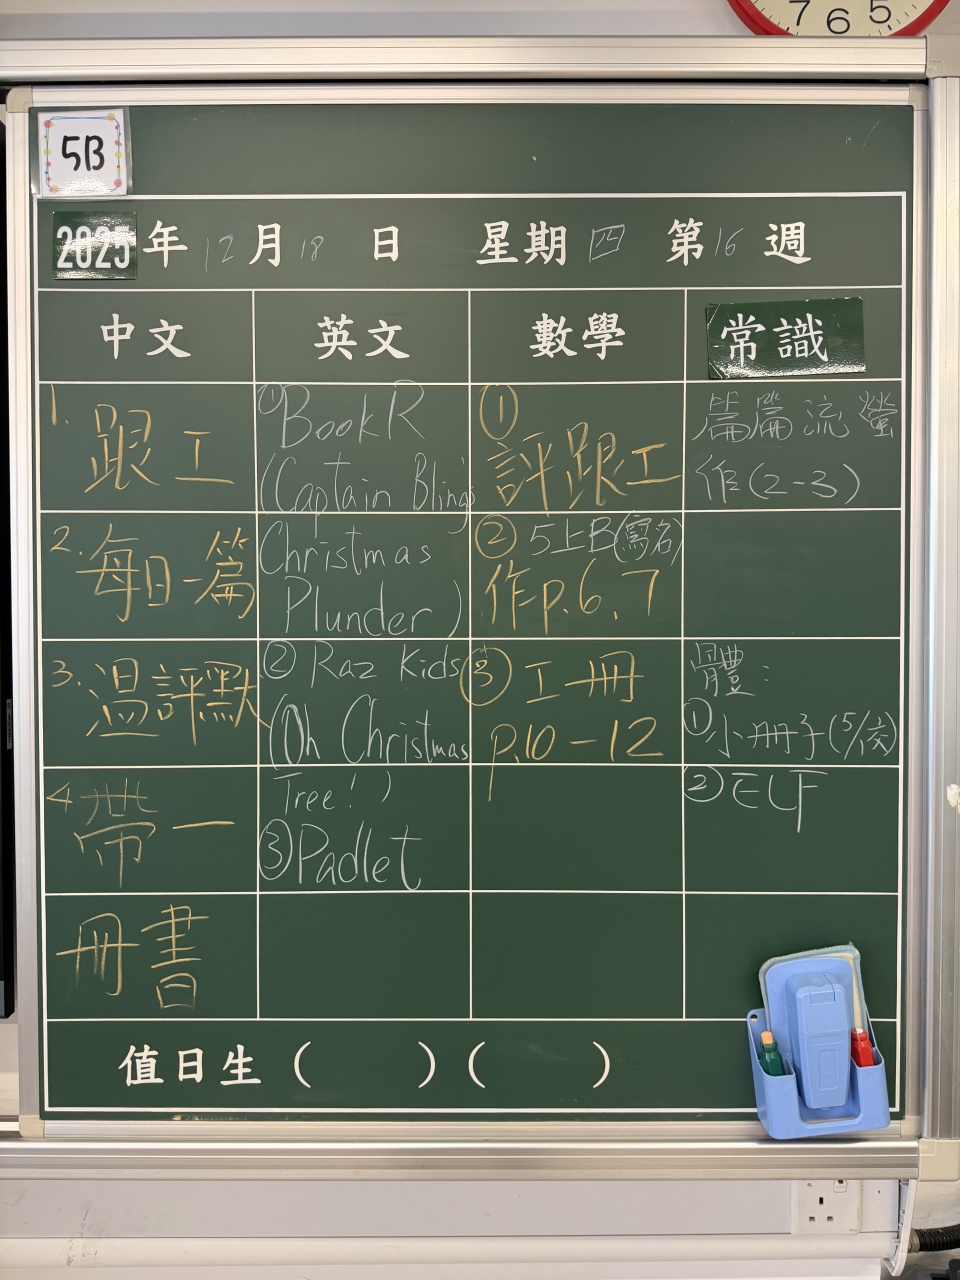 7 6 5
5B
2025年 12月 18日 星期四 第16週
中文 英文 數學 常識
1. 跟工
2. 每日一篇
3. 温評默
4 帶一
冊書
①BookR
(Captain Bling's
Christmas
Plunder)
② Raz Kids
(Oh Christmas
Tree!)
③Padlet
①
評跟工
② 5上B(寫名)
作p.6,7
③ 工冊
p.10-12
篇篇流螢
作(2-3)
體:
①小冊子(5/交)
②ELF
值日生 ( ) ( )